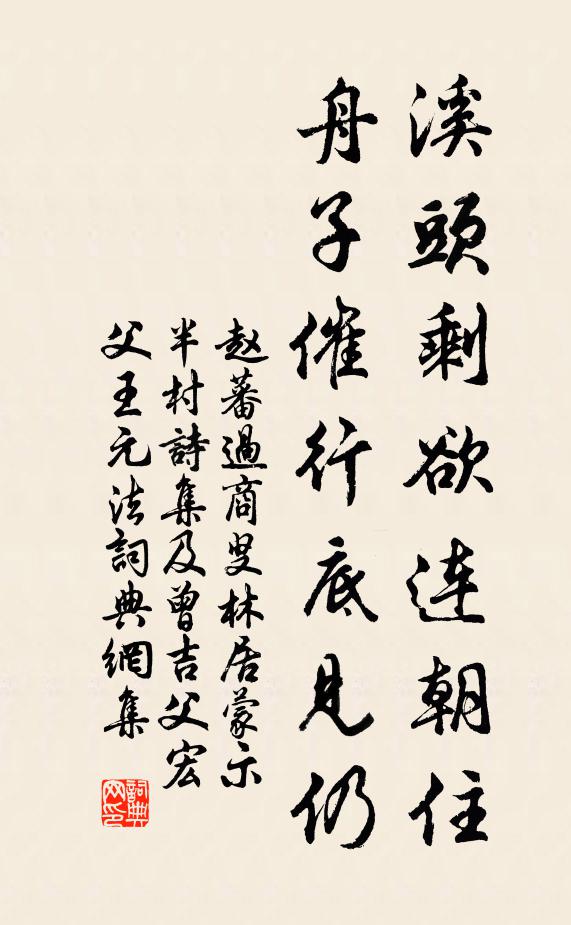 溪頭剩欲連朝住
舟子催行底見仍
赵蕃過商叟林居蒙示
半村詩集及曾吉父宏
父王元法詞典網集
詞典网印